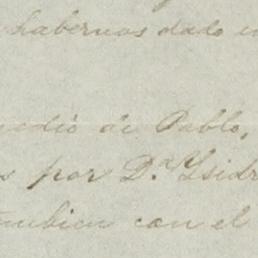 habernos dado
de Pablo,
por D.ª Ysidr
tambien con el